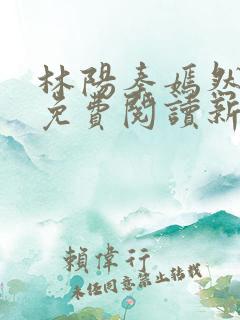 林陽秦嫣然
免費閱讀新
賴偉行
未經同意禁止轉載